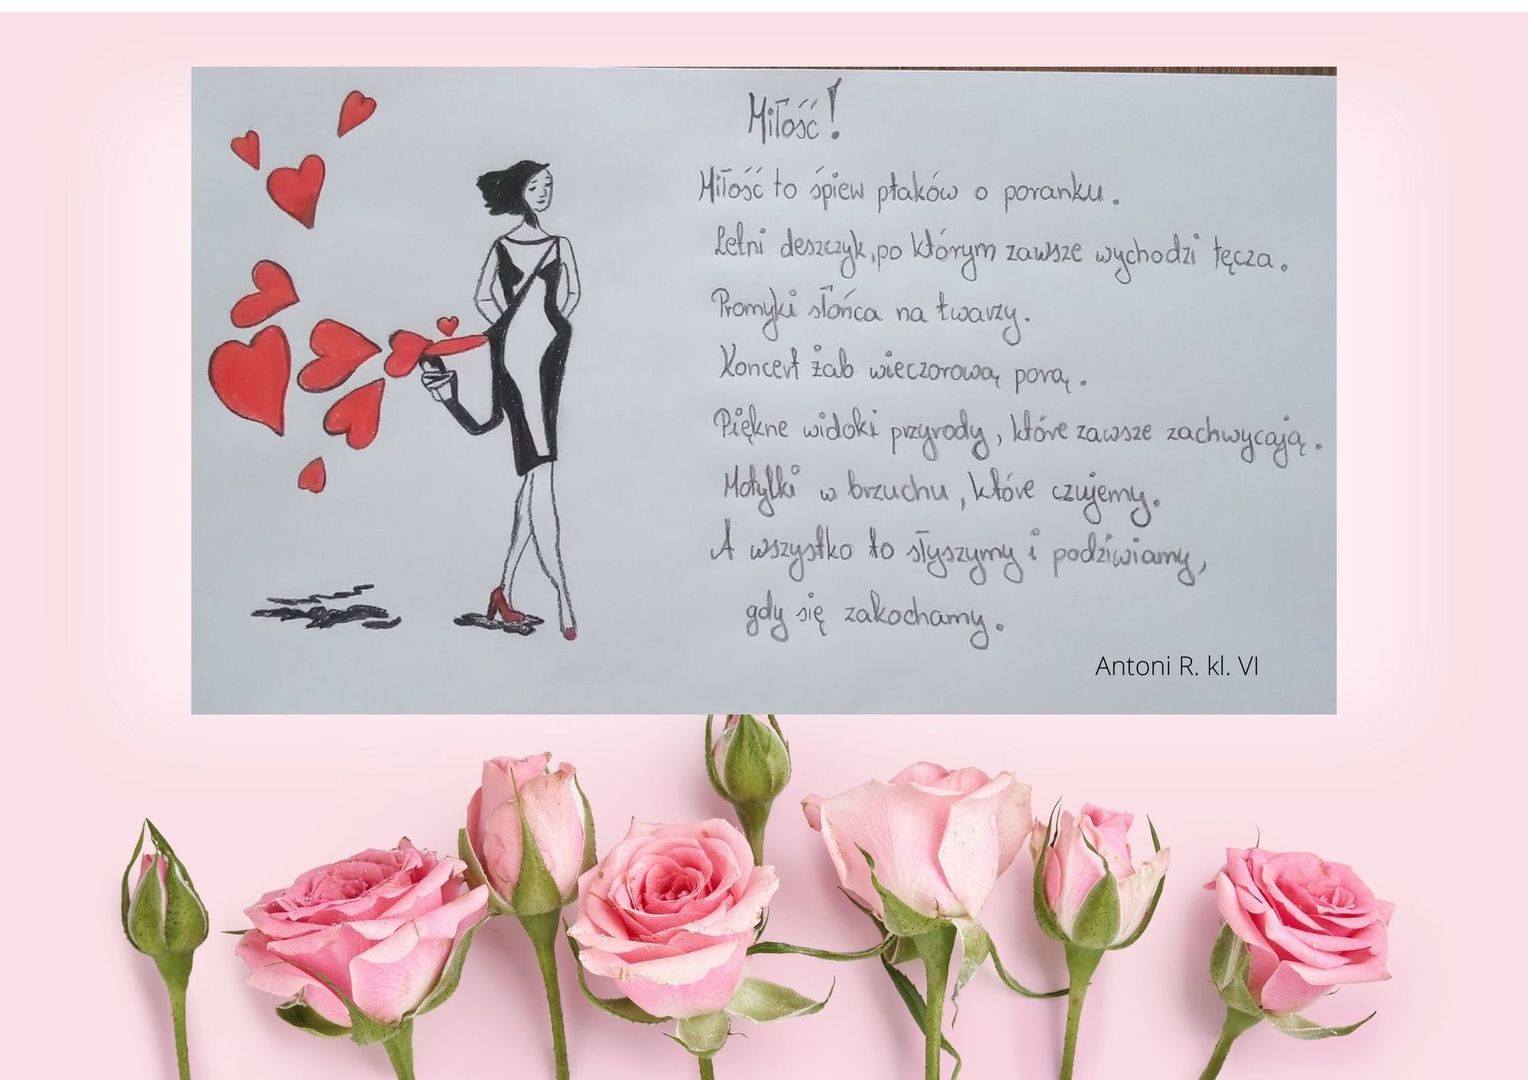 Miłość!
Miłość to śpiew ptaków o poranku.
Letni deszczyk, po którym zawsze wychodzi tęcza.
Promyki słońca na twarzy.
Koncert żab wieczorową porą.
Piękne widoki przyrody, które zawsze zachwycają.
Motylki w brzuchu, które czujemy.
A wszystko to słyszymy i podziwiamy,
gdy się zakochamy.
Antoni R. kl. VI